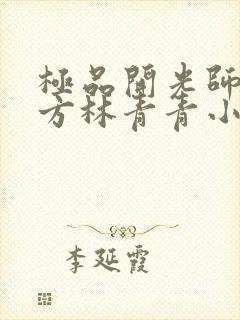 極品開光師
方林青青小
李延霞